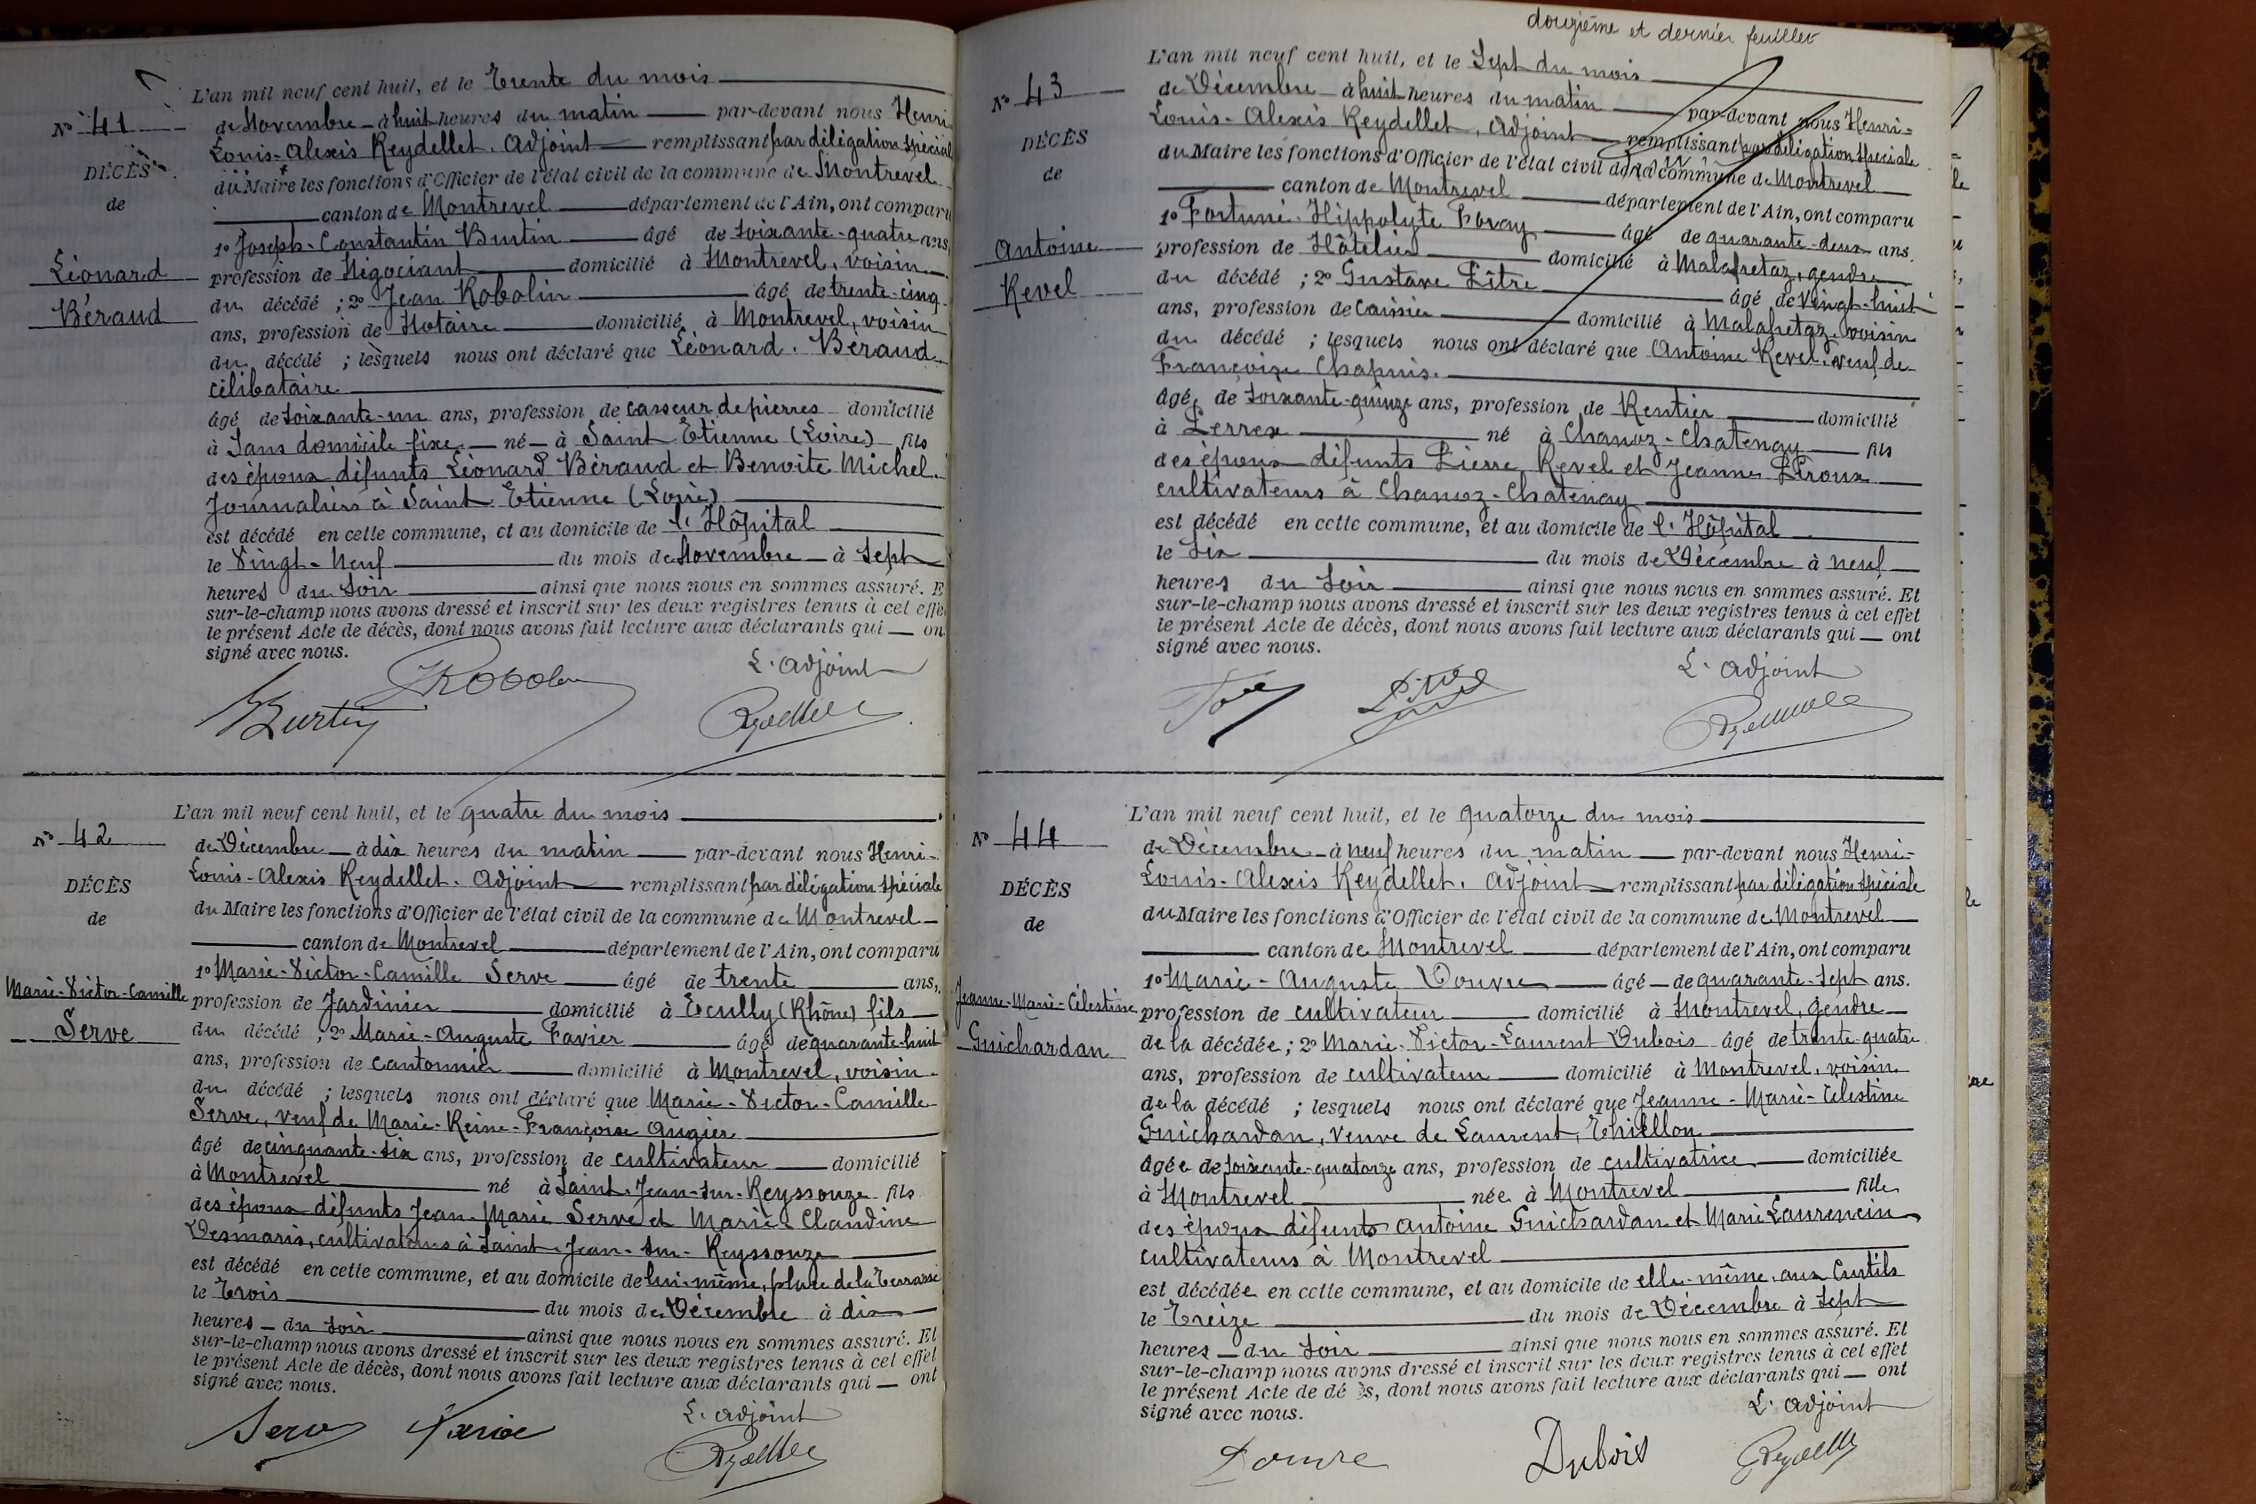 L'an mil neuf cent huit, et le Trente du mois
N° 41
de Novembre à huit heures du matin par-devant nous Henri
Louis-Alexis Reydellet. Adjoint remplissant par délégation spéciale
DÉCÈS
du Maire les fonctions d'Officier de l'état civil de la commune de Montrevel
de
canton de Montrevel département de l'Ain, ont comparu
1° Joseph-Constantin Burtin âgé de soixante-quatre ans,
Léonard
profession de Négociant domicilié à Montrevel, voisin
Béraud
du décédé ; 2° Jean Robolin âgé de trente-cinq
ans, profession de Notaire domicilié à Montrevel, voisin
du décédé ; lesquels nous ont déclaré que Léonard Béraud
célibataire
âgé de soixante-un ans, profession de casseur de pierres domicilié
à Sans domicile fixe né à Saint Etienne (Loire) fils
des époux défunts Léonard Béraud et Benoite Michel
Journaliers à Saint Etienne (Loire)
est décédé en cette commune, et au domicile de l'Hôpital
le Vingt-Neuf du mois de Novembre à sept
heures du soir ainsi que nous nous en sommes assuré. E
sur-le-champ nous avons dressé et inscrit sur les deux registres tenus à cet effe
le présent Acte de décès, dont nous avons fait lecture aux déclarants qui on
signé avec nous.
L'adjoint
Robolin
Burtin
Reydellet
L'an mil neuf cent huit, et le quatre du mois
N° 42
de Décembre à dix heures du matin par-devant nous Henri-
Louis-Alexis Reydellet. Adjoint remplissant par délégation spéciale
DÉCÈS
du Maire les fonctions d'Officier de l'état civil de la commune de Montrevel
de
canton de Montrevel département de l'Ain, ont comparu
1° Marie-Victor-Camille Serve âgé de trente ans,
Marie-Victor-Camille
profession de Jardinier domicilié à Ecully (Rhône) fils
Serve
du décédé ; 2° Marie-Auguste Favier âgé de quarante-huit
ans, profession de cantonnier domicilié à Montrevel, voisin
du décédé ; lesquels nous ont déclaré que Marie-Victor-Camille
Serve, veuf de Marie-Reine-Françoise Augier
âgé de cinquante-six ans, profession de cultivateur domicilié
à Montrevel né à Saint-Jean-sur-Reyssouze fils
des époux défunts Jean-Marie Serve et Marie-Claudine
Desmaris, cultivateurs à Saint-Jean-sur-Reyssouze
est décédé en cette commune, et au domicile de lui-même, place de la Terrasse
le Trois du mois de Décembre à dix
heures du soir ainsi que nous nous en sommes assuré. Et
sur-le-champ nous avons dressé et inscrit sur les deux registres tenus à cet effet
le présent Acte de décès, dont nous avons fait lecture aux déclarants qui ont
signé avec nous.
L'adjoint
Serve Favier
Reydellet
douzième et dernier feuillet
L'an mil neuf cent huit, et le Sept du mois
N° 43
de Décembre à huit heures du matin par-devant nous Henri-
Louis-Alexis Reydellet, Adjoint remplissant par délégation spéciale
DÉCÈS
du Maire les fonctions d'Officier de l'état civil de la commune de Montrevel
de
canton de Montrevel département de l'Ain, ont comparu
1° Fortuné-Hippolyte Foray âgé de quarante-deux ans.
Antoine
profession de Hôtelier domicilié à Malafretaz, gendre
Revel
du décédé ; 2° Gustave Pître âgé de vingt-huit
ans, profession de caissier domicilié à Malafretaz, voisin
du décédé ; lesquels nous ont déclaré que Antoine Revel, veuf de
Françoise Chapuis.
âgé de soixante-quinze ans, profession de Rentier domicilié
à Perrex né à Chanoz-Chatenay fils
des époux défunts Pierre Revel et Jeanne Piroux
cultivateurs à Chanoz-Chatenay
est décédé en cette commune, et au domicile de l'Hôpital
le six du mois de Décembre à neuf
heures du soir ainsi que nous nous en sommes assuré. Et
sur-le-champ nous avons dressé et inscrit sur les deux registres tenus à cet effet
le présent Acte de décès, dont nous avons fait lecture aux déclarants qui ont
signé avec nous.
L'adjoint
Reydellet
L'an mil neuf cent huit, et le quatorze du mois
N° 44
de Décembre à neuf heures du matin par-devant nous Henri-
Louis-Alexis Reydellet. Adjoint remplissant par délégation spéciale
DÉCÈS
du Maire les fonctions d'Officier de l'état civil de la commune de Montrevel
de
canton de Montrevel département de l'Ain, ont comparu
1° Marie-Auguste Douvre âgé de quarante-sept ans.
Jeanne-Marie-Célestine
profession de cultivateur domicilié à Montrevel, gendre
Guichardan
de la décédée ; 2° Marie-Victor-Laurent Dubois âgé de trente-quatre
ans, profession de cultivateur domicilié à Montrevel, voisin
de la décédé ; lesquels nous ont déclaré que Jeanne-Marie-Célestine
Guichardan, veuve de Laurent Thiellon
âgée de soixante-quatorze ans, profession de cultivatrice domiciliée
à Montrevel née à Montrevel fille
des époux défunts Antoine Guichardan et Marie Laurencin
cultivateurs à Montrevel
est décédée en cette commune, et au domicile de elle-même, aux Curtils
le Treize du mois de Décembre à sept
heures du soir ainsi que nous nous en sommes assuré. Et
sur-le-champ nous avons dressé et inscrit sur les deux registres tenus à cet effet
le présent Acte de dé s, dont nous avons fait lecture aux déclarants qui ont
signé avec nous.
L'adjoint
Douvre Dubois Reydellet